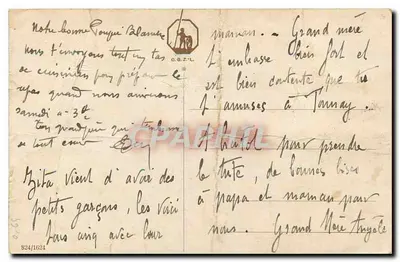 Notre bonne
nous t'envoyons tout un tas
de cuisiniers pour préparer le
repas quand nous arriverons
samedi à 3h
ton grand père qui t'embrasse
de tout coeur
Zita vient d'avoir des
petits garçons, les voici
tous cinq avec leur
924/1031
maman. - Grand mère
t'embrasse bien fort et
est bien contente que tu
t'amuses à Tonnay.
A bientôt pour prendre
le tute, de bonnes bises
à papa et maman pour
nous. Grand Mère Angèle
CPARAMA